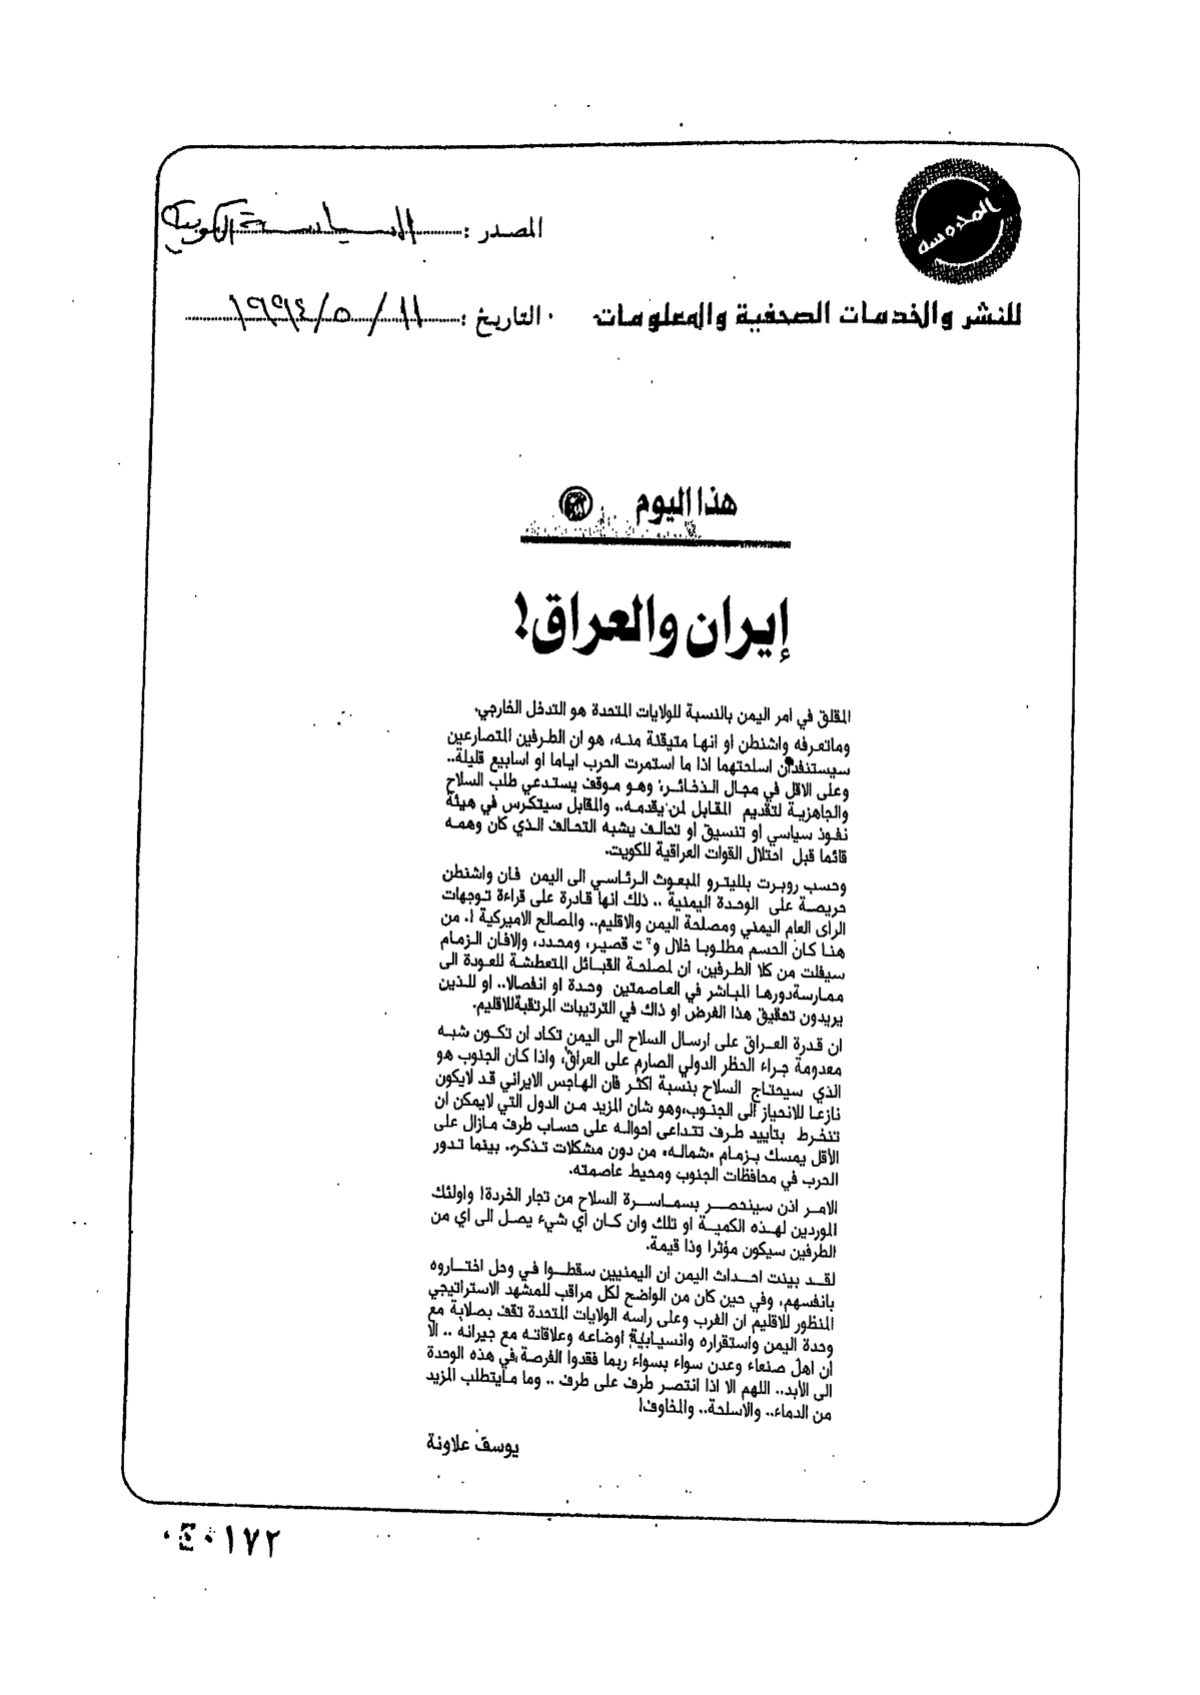 المحروسة
المصدر : السياسة الكويتية
للنشر والخدمات الصحفية والمعلومات
التاريخ : ١١ / ٥ / ١٩٩٤
هذا اليوم
إيران والعراق!
المقلق في امر اليمن بالنسبة للولايات المتحدة هو التدخل الخارجي.
وماتعرفه واشنطن او انها متيقنة منه، هو ان الطرفين المتصارعين
سيستنفدان اسلحتهما اذا ما استمرت الحرب اياما او اسابيع قليلة..
وعلى الاقل في مجال الذخائر: وهو موقف يستدعي طلب السلاح
والجاهزية لتقديم المقابل لمن يقدمه.. والمقابل سيتكرس في هيئة
نفوذ سياسي او تنسيق او تحالف يشبه التحالف الذي كان وهمه
قائما قبل احتلال القوات العراقية للكويت.
وحسب روبرت بلليترو المبعوث الرئاسي الى اليمن فان واشنطن
حريصة على الوحدة اليمنية .. ذلك انها قادرة على قراءة توجهات
الراى العام اليمني ومصلحة اليمن والاقليم.. والمصالح الاميركية !. من
هنا كان الحسم مطلوبا خلال وقت قصير، ومحدد، والافان الزمام
سيفلت من كلا الطرفين، ان لمصلحة القبائل المتعطشة للعودة الى
ممارسةدورها المباشر في العاصمتين وحدة او انفصالا.. او للذين
يريدون تحقيق هذا الغرض او ذاك في الترتيبات المرتقبةللاقليم.
ان قدرة العراق على ارسال السلاح الى اليمن تكاد ان تكون شبه
معدومة جراء الحظر الدولي الصارم على العراق، واذا كان الجنوب هو
الذي سيحتاج السلاح بنسبة اكثر فان الهاجس الايراني قد لايكون
نازعا للانحياز الى الجنوب،وهو شان المزيد من الدول التي لايمكن ان
تنخرط بتاييد طرف تتداعى احواله على حساب طرف مازال على
الأقل يمسك بزمام «شماله» من دون مشكلات تذكر.. بينما تدور
الحرب في محافظات الجنوب ومحيط عاصمته.
الامر اذن سينحصر بسماسرة السلاح من تجار الخردة! واولئك
الموردين لهذه الكمية او تلك وان كان اي شيء يصل الى اي من
الطرفين سيكون مؤثرا وذا قيمة.
لقد بينت احداث اليمن ان اليمنيين سقطوا في وحل اختاروه
بانفسهم، وفي حين كان من الواضح لكل مراقب للمشهد الاستراتيجي
المنظور للاقليم ان الغرب وعلى راسه الولايات المتحدة تقف بصلابة مع
وحدة اليمن واستقراره وانسيابية اوضاعه وعلاقاته مع جيرانه .. الا
ان اهل صنعاء وعدن سواء بسواء ربما فقدوا الفرصة في هذه الوحدة
الى الأبد.. اللهم الا اذا انتصر طرف على طرف .. وما مايتطلب المزيد
من الدماء.. والاسلحة.. والمخاوف!
يوسف علاونة